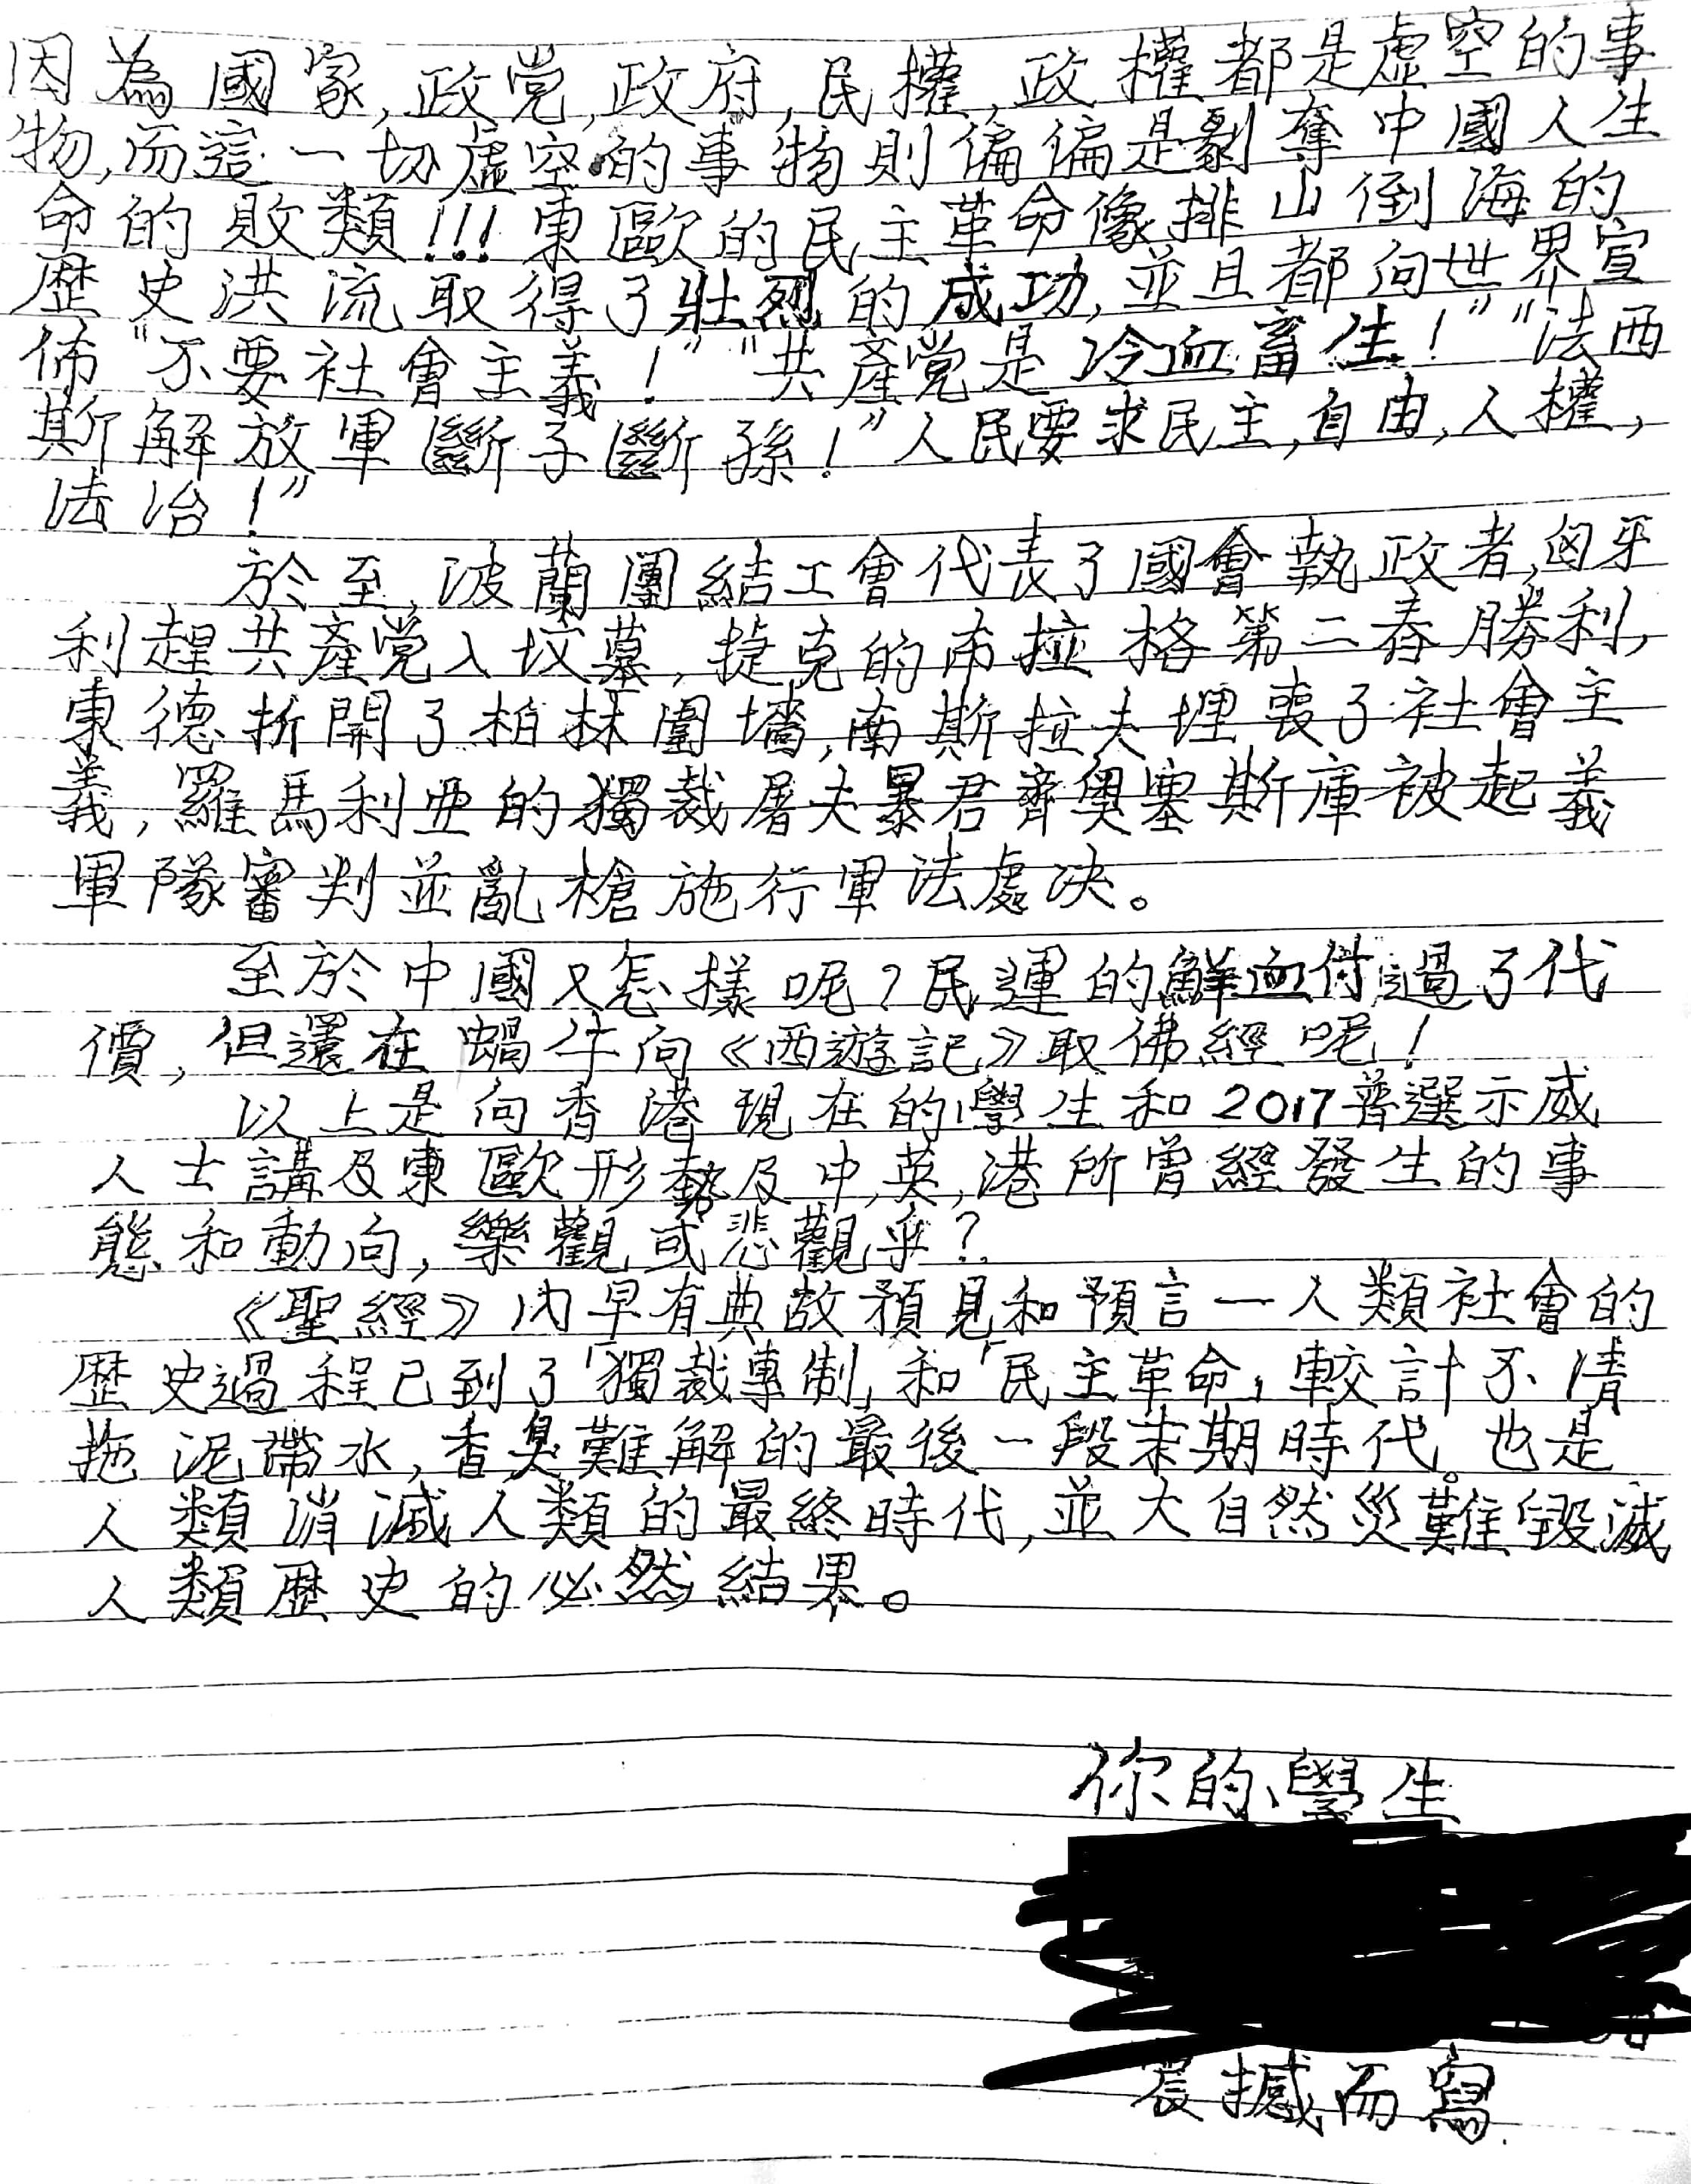 因為國家,政党,政府,民權,政權都是虛空的事
物,而這一切虛空的事物則偏偏是剝奪中國人生
命的敗類!!!東歐的民主革命像排山倒海的
歷史洪流取得了壯烈的成功,並且都向世界宣
佈“不要社會主義!”“共產党是冷血畜生!”“法西
斯解放軍斷子斷孫!”人民要求民主,自由,人權,
法治!”
於至,波蘭團結工會代表了國會執政者,匈牙
利趕共產党入坟墓,捷克的布拉格第二春勝利,
東德拆開了柏林圍墻,南斯拉夫埋喪了社會主
義,羅馬利亞的獨裁屠夫暴君齊奧塞斯庫被起義
軍隊審判並亂槍施行軍法處決。
至於中國又怎樣呢?民運的鮮血付過了代
價,但還在蝸牛向《西遊記》取佛經呢!
以上是向香港現在的學生和2017普選示威
人士講及東歐形勢及中,英,港所曾經發生的事
態和動向,樂觀或悲觀乎?
《聖經》內早有典故預見和預言一人類社會的
歷史過程已到了「獨裁專制」和「民主革命」較計不清
拖泥帶水,香臭難解的最後一段末期時代。也是
人類消滅人類的最終時代,並大自然災難毀滅
人類歷史的必然結果。
你的學生
震撼而寫